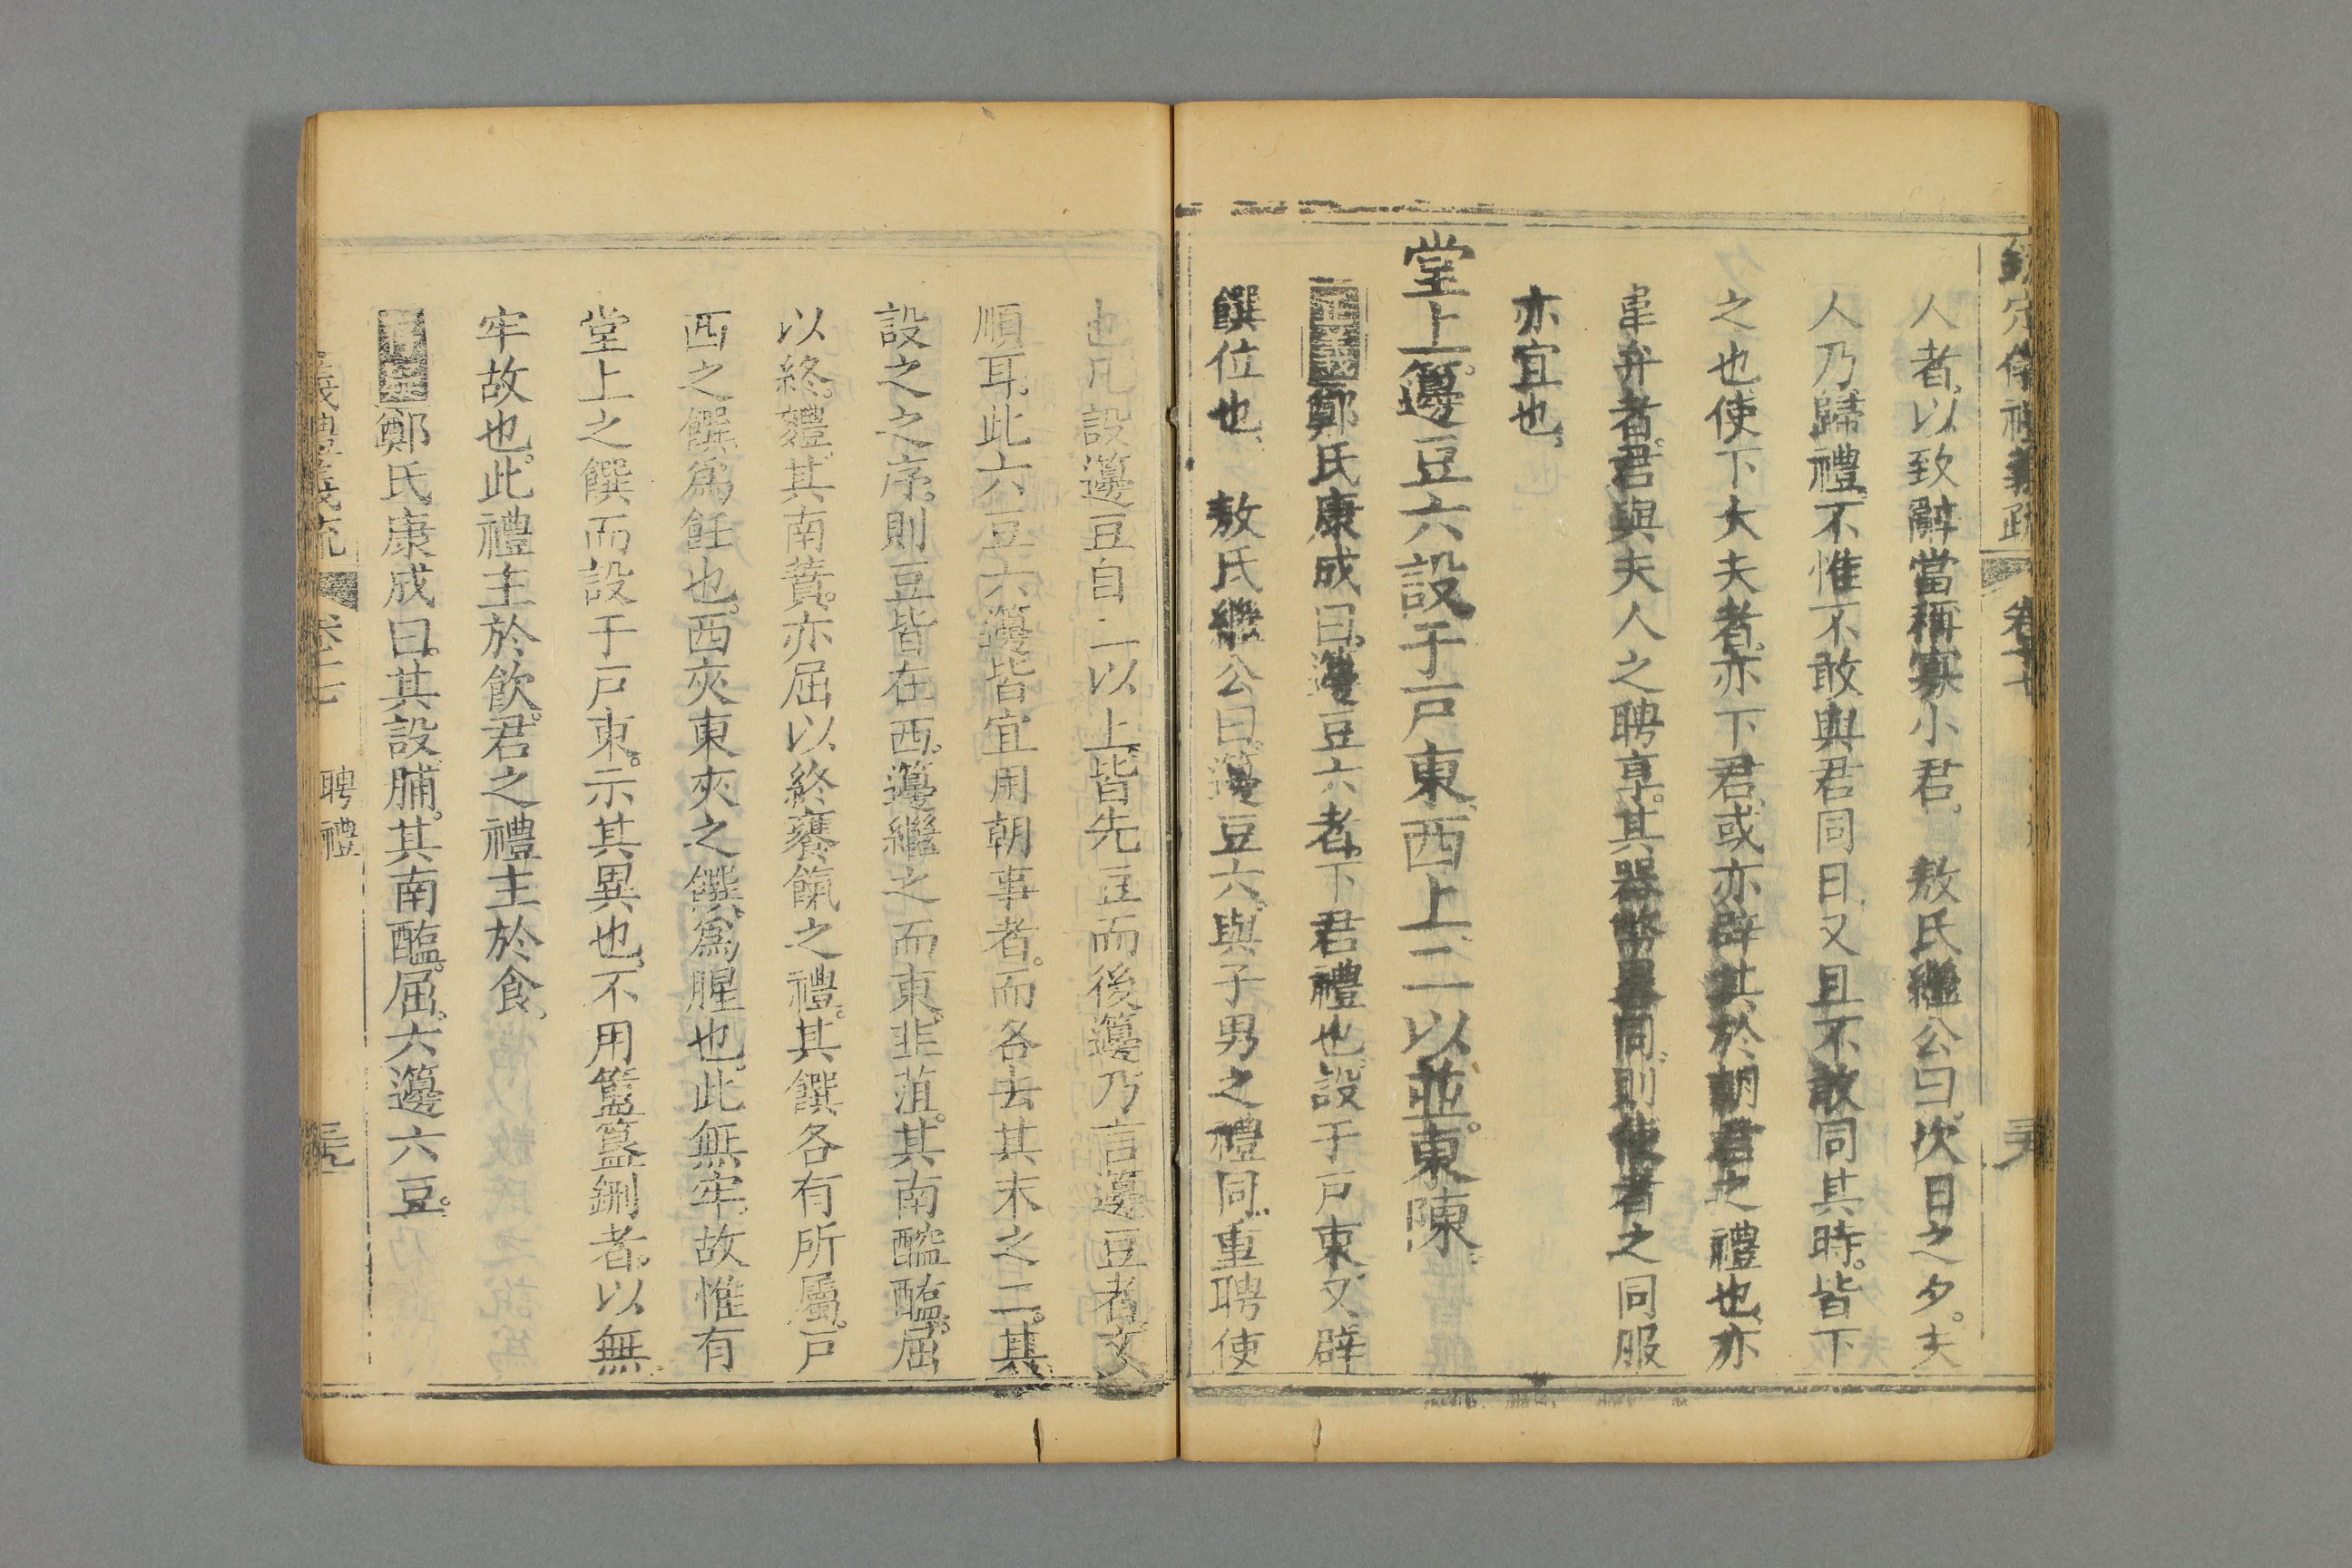 欽定儀禮義疏 卷十七
人者以致辭當稱寡小君 敖氏繼公曰次日之夕夫
人乃歸禮不惟不敢與君同日又且不敢同其時皆下
之也使下大夫者亦下君或亦辟其於朝君之禮也亦
韋弁者君與夫人之聘享其器幣畧同則使者之同服
亦宜也
堂上籩豆六設于戸東西上二以並東陳
正義鄭氏康成曰籩豆六者下君禮也設于戸東又辟
饌位也 敖氏繼公曰籩豆六與子男之禮同重聘使
也凡設籩豆自二以上皆先豆而後籩乃言籩豆者文
順耳此六豆六籩皆宜用朝事者而各去其末之二其
設之之序則豆皆在西籩繼之而東韭菹其南醓醢屈
以終麷其南蕡亦屈以終饔餼之禮其饌各有所屬戸
西之饌爲飪也西夾東夾之饌爲腥也此無牢故惟有
堂上之饌而設于戸東示其異也不用簠簋鉶者以無
牢故也此禮主於飲君之禮主於食
存疑鄭氏康成曰其設脯其南醢屈六籩六豆
義禮義疏 卷十七 聘禮